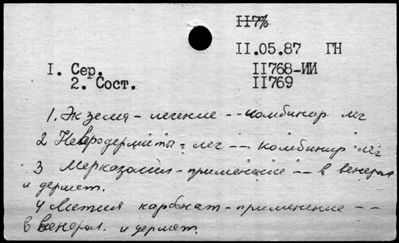 II7%
II.05.87 ГН
I. Сер. II768-ИИ
2. Сост. II769
1. Экзема - лечение -- комбинир лег
2 Невродермиты - лег -- комбинир лег
3 Мерказолил - применение -- в венерол
и дермат.
4 Лития карбонат - применение --
в венерол. и дермат.